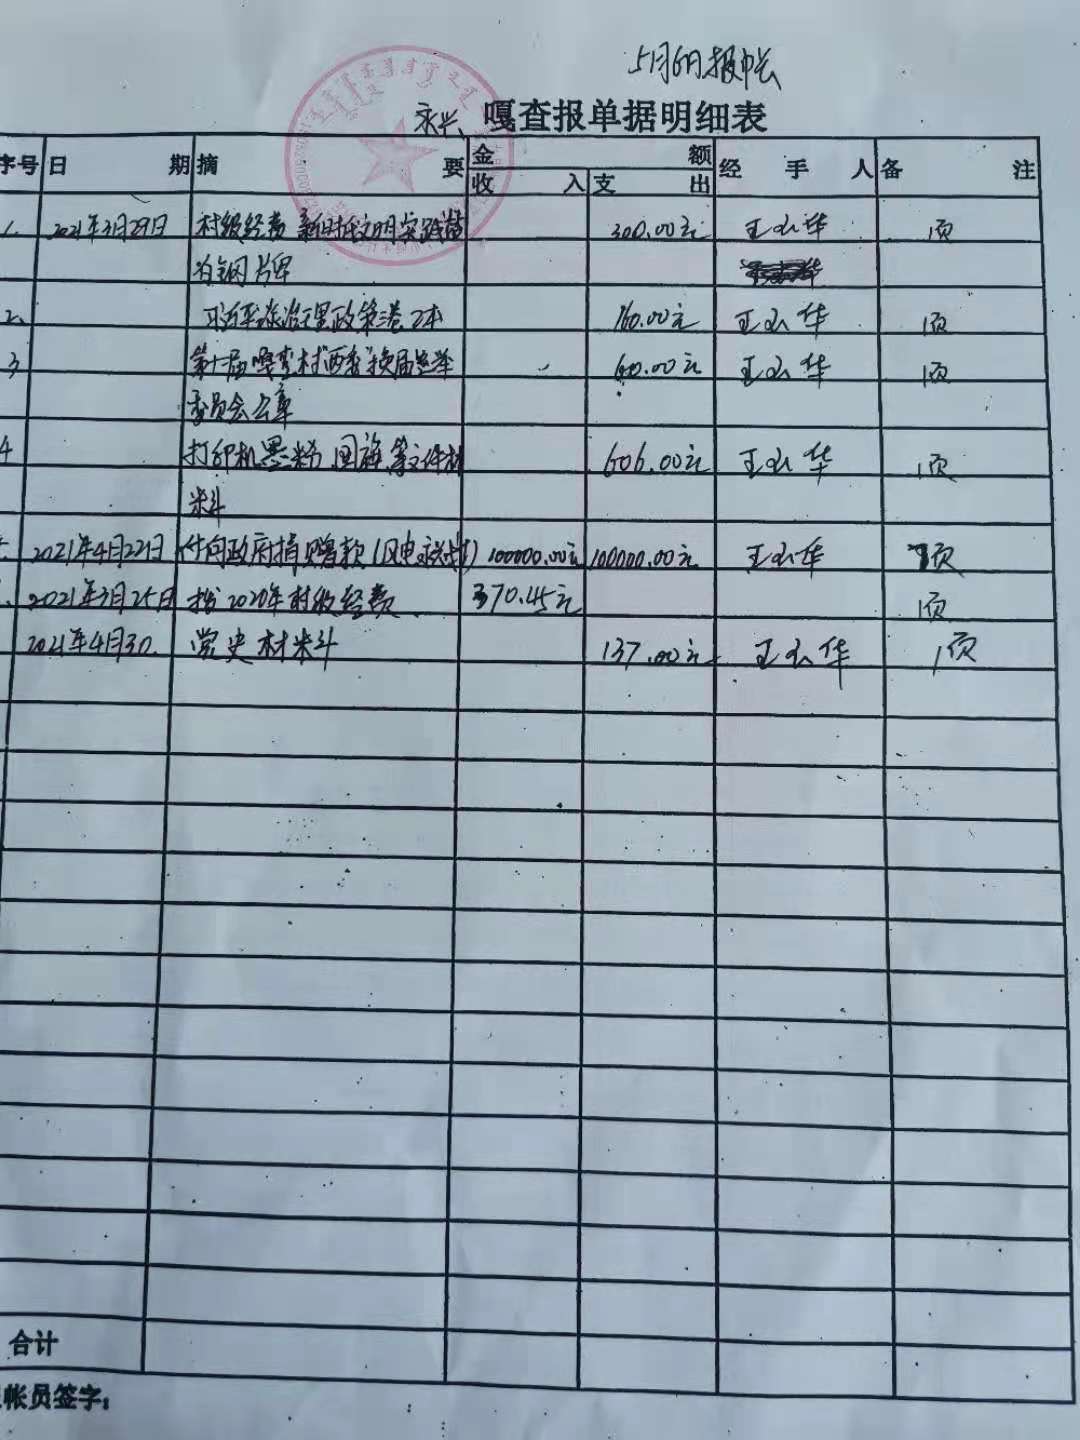 5月6日报帐
永兴 嘎查报单据明细表
序号 日 期 摘 要 金 额 经 手 人 备 注
收 入 支 出
1. 2021年3月29日 村级经费 新时代文明实践 300.00元 王玉华 1页
铜牌
2. 习近平谈治理政策 2本 160.00元 王玉华 1页
3 第十一届嘎查村"两委"换届选举 60.00元 王玉华 1页
委员会公章
4 打印机墨粉 等文件材 606.00元 王玉华 1页
料
2021年4月22日 付向政府捐赠款(风电 ) 100000.00元 100000.00元 王玉华 1页
2021年3月25日 拨2020年村级经费 370.45元 1页
2021年4月30. 党史材料 137.00元 王玉华 1页
合计
帐员签字: